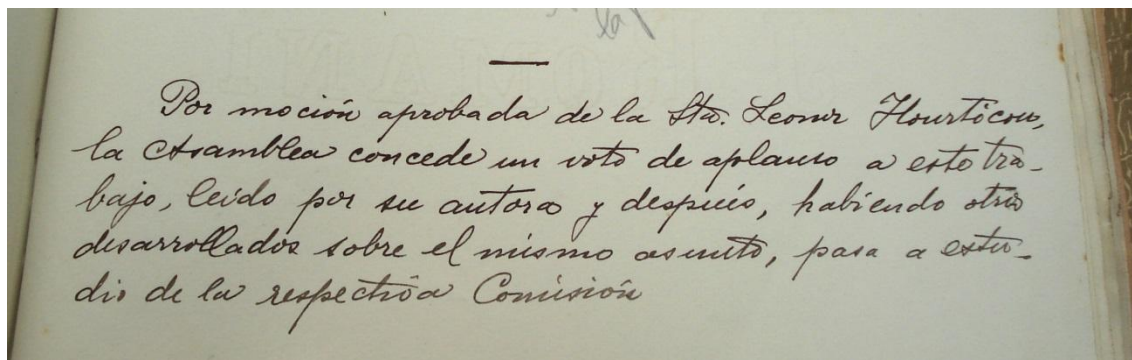 Por moción aprobada de la Sta. Leonor Hourticou,
la Asamblea concede un voto de aplauso a este tra-
bajo, leído por su autora y después, habiendo otros
desarrollados sobre el mismo asunto, pasa a estu-
dio de la respectiva Comisión